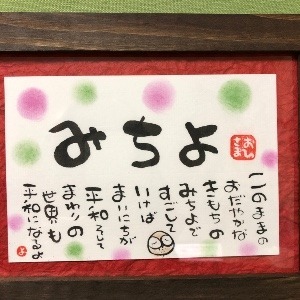 みちよ
おひさま
このままの
おだやかな
きもちの
みちよで
すごして
いけば
まいにちが
平和 そして
まわりの
世界も
平和になるよ